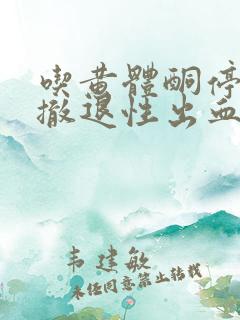 喫黃體酮停
撤退性出血
韦建敏
未经同意禁止转载